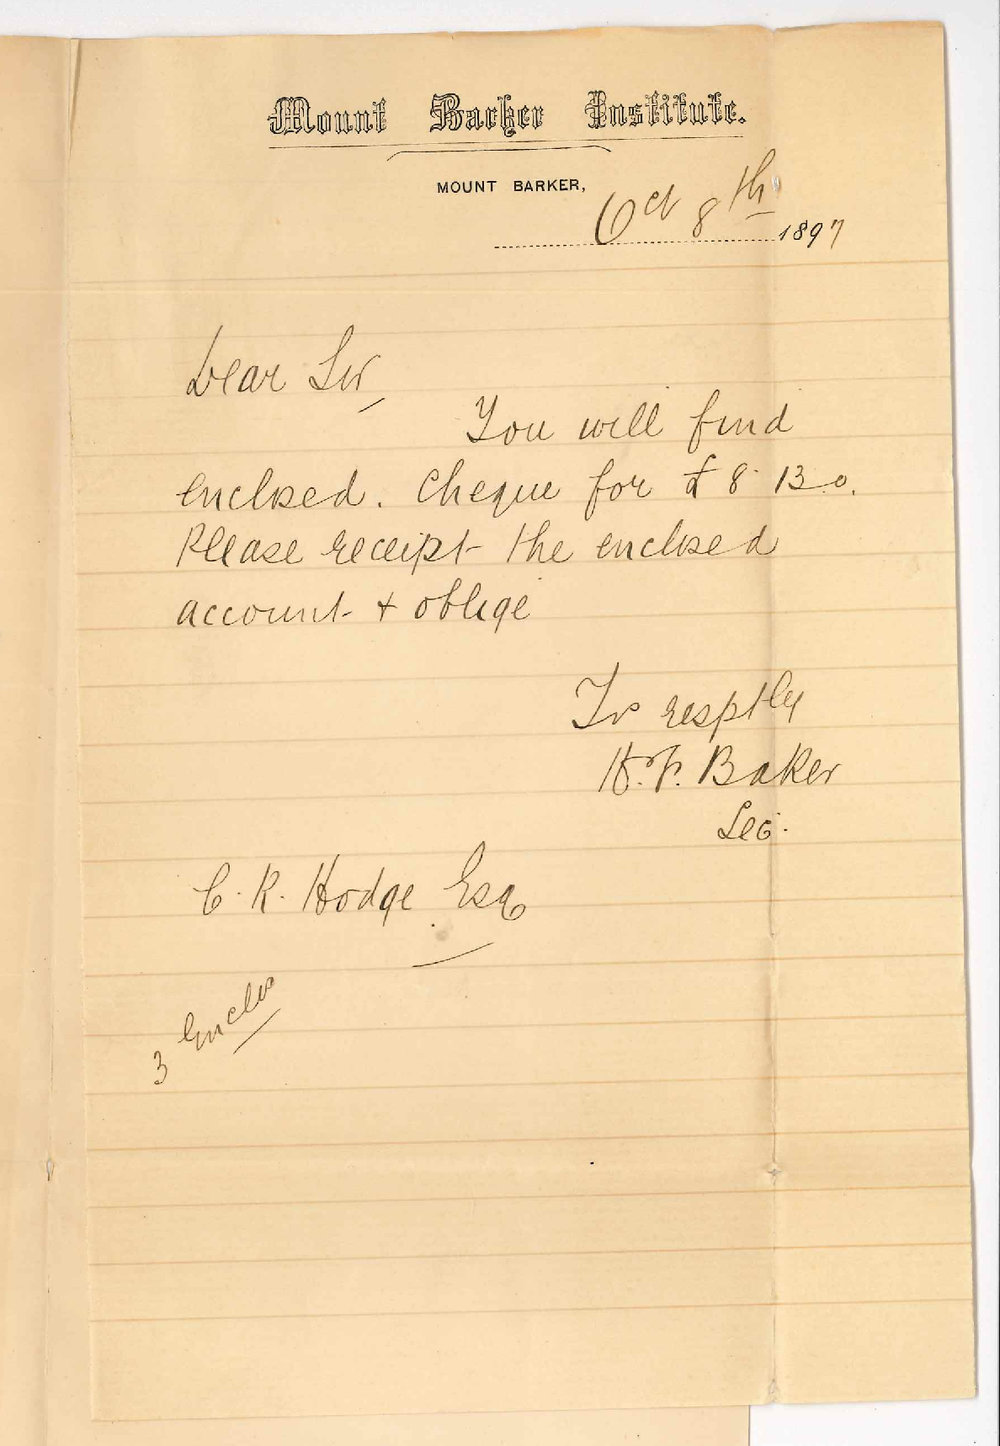 Mount Barker Institute.
MOUNT BARKER,
Oct 8th 1897
Dear Sir
You will find
enclosed. Cheque for £8.13.0.
Please receipt the enclosed
account & oblige
Yrs resptly
H. F. Baker
Sec.
C. R. Hodge Esq
3 Enclos